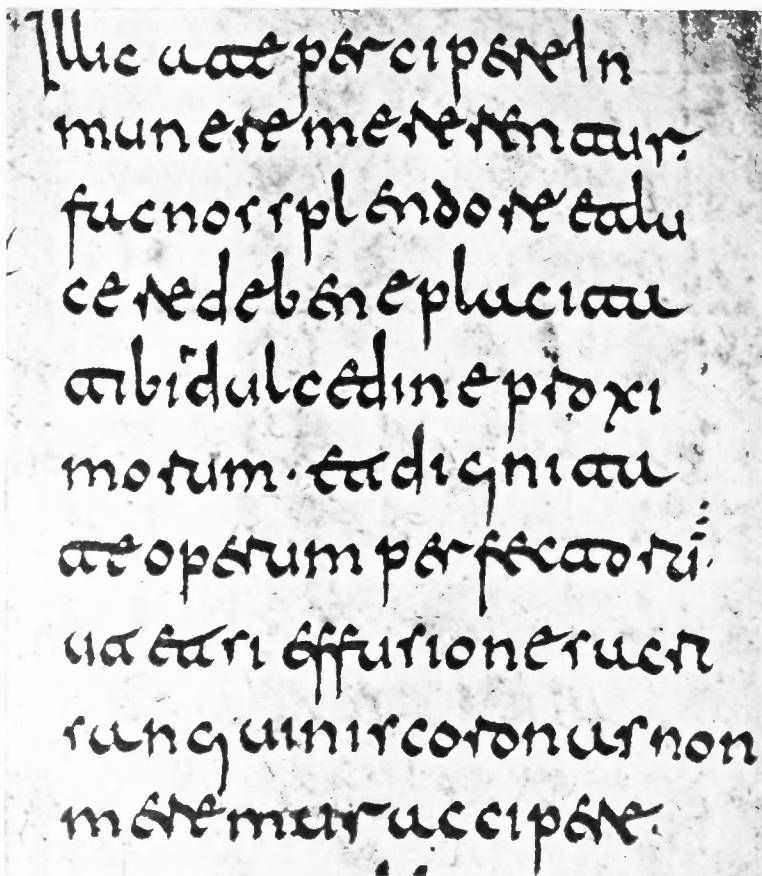 Illic a te percipere In
munere mererentur.
fac nos splendore et lu
cere de beneplacita
tibi dulcedine proxi
morum · et dignita
te operum perfectorū.
ut etsi effusione sacri
sanguinis coronas non
meremur accipere.